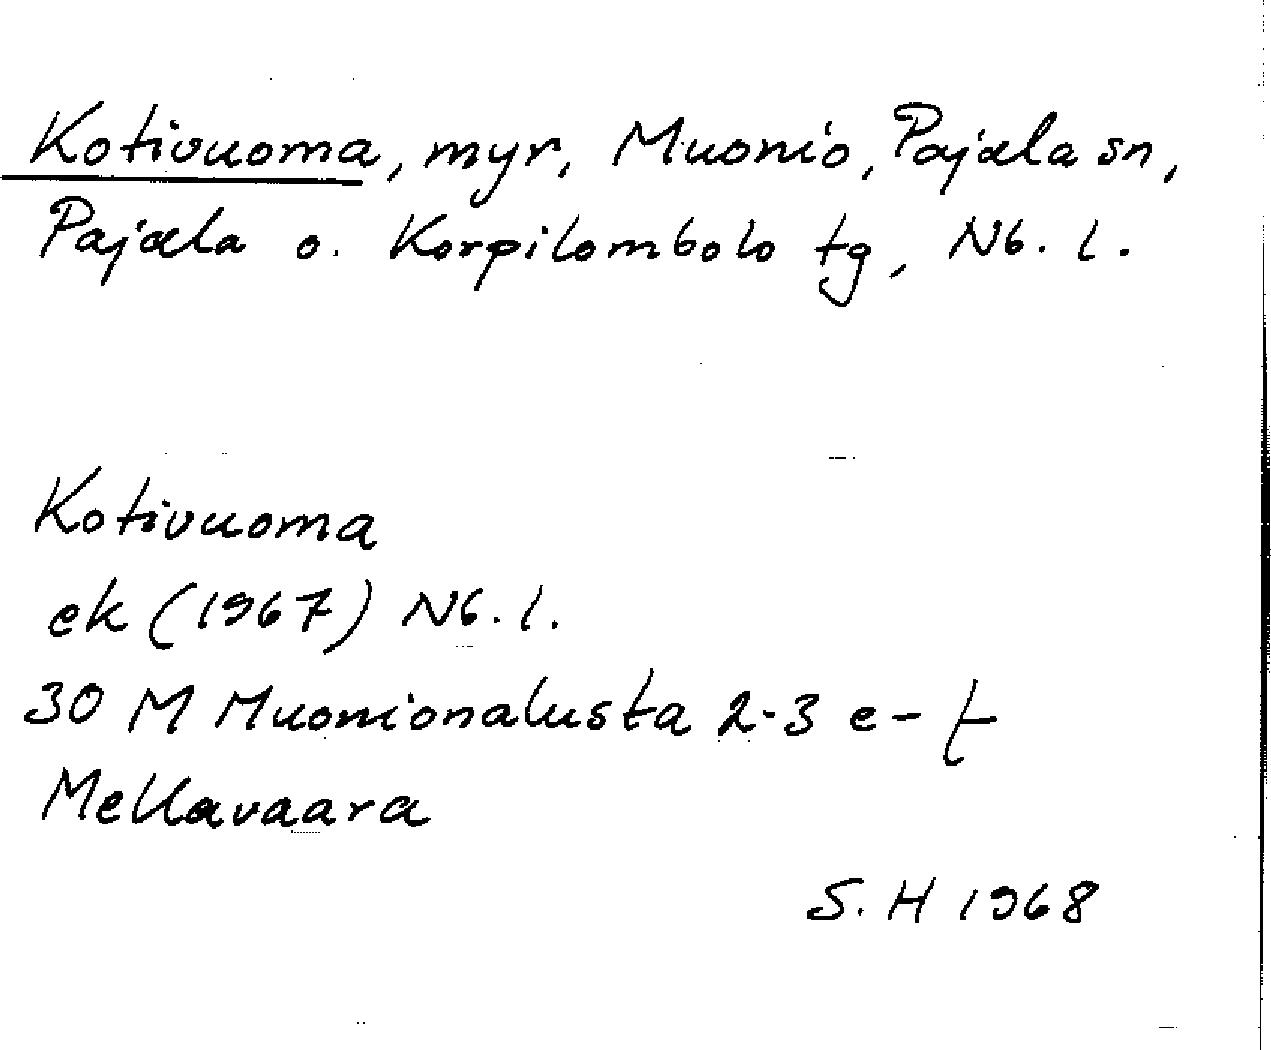 Kotivuoma, myr, Muonio, Pajala sn,
Pajala o. Korpilombolo tg, Nb. l.
Kotivuoma
ek (1967) Nb. l.
30 M Muonionalusta 2-3 e-f
Mellavaara
S. H 1968